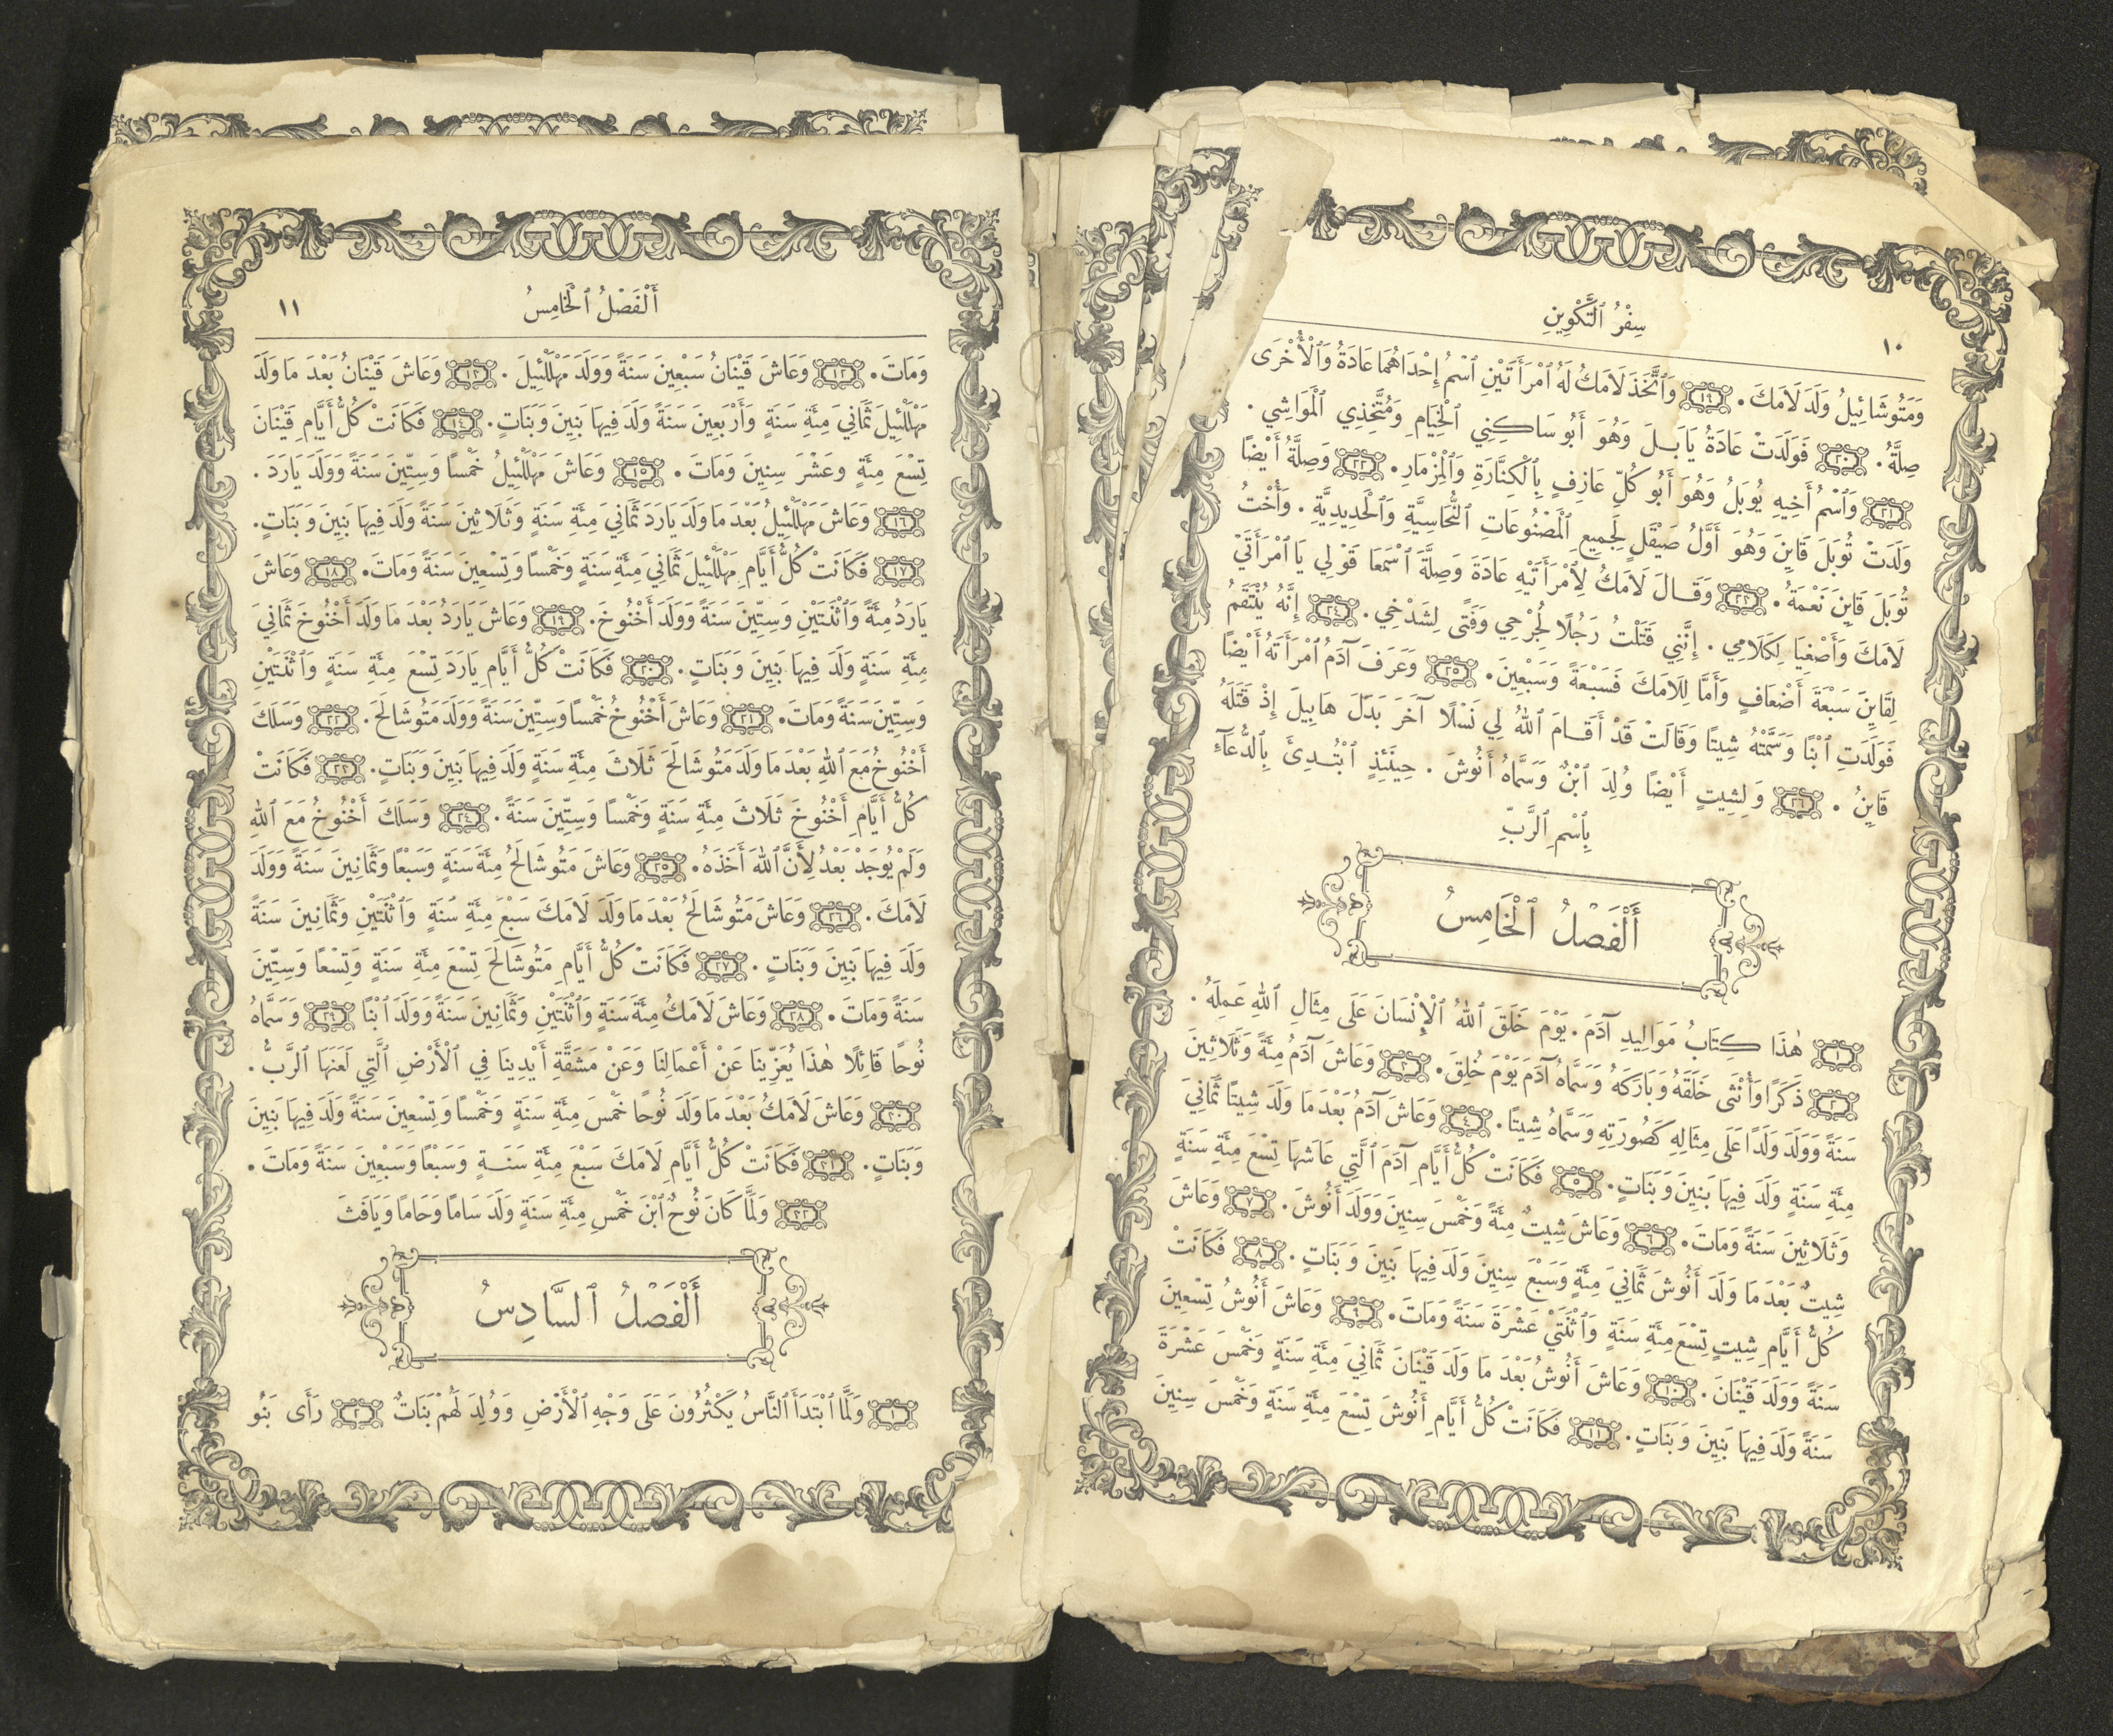 ١٠
سِفْرُ ٱلتَّكْوِينِ
وَمَتُوشَائِيلُ وَلَدَ لَامَكَ. ١٩ وَٱتَّخَذَ لَامَكُ لَهُ ٱمْرَأَتَيْنِ ٱسْمُ إِحْدَاهُمَا عَادَةُ وَٱلْأُخْرَى
صِلَّةُ. ٢٠ فَوَلَدَتْ عَادَةُ يَابَلَ وَهُوَ أَبُو سَاكِنِي ٱلْخِيَامِ وَمُتَّخِذِي ٱلْمَوَاشِي.
٢١ وَٱسْمُ أَخِيهِ يُوبَلُ وَهُوَ أَبُو كُلِّ عَازِفٍ بِٱلْكِنَّارَةِ وَٱلْمِزْمَارِ. ٢٢ وَصِلَّةُ أَيْضًا
وَلَدَتْ تُوبَلَ قَايِنَ وَهُوَ أَوَّلُ صَيْقَلٍ لِجَمِيعِ ٱلْمَصْنُوعَاتِ ٱلنُّحَاسِيَّةِ وَٱلْحَدِيدِيَّةِ. وَأُخْتُ
تُوبَلَ قَايِنَ نَعْمَةُ. ٢٣ وَقَالَ لَامَكُ لِٱمْرَأَتَيْهِ عَادَةَ وَصِلَّةَ ٱسْمَعَا قَوْلِي يَا ٱمْرَأَتَيْ
لَامَكَ وَأَصْغِيَا لِكَلَامِي. إِنَّنِي قَتَلْتُ رَجُلًا لِجُرْحِي وَفَتًى لِشَدْخِي. ٢٤ إِنَّهُ يُنْتَقَمُ
لِقَايِنَ سَبْعَةَ أَضْعَافٍ وَأَمَّا لِلَامَكَ فَسَبْعَةً وَسَبْعِينَ. ٢٥ وَعَرَفَ آدَمُ ٱمْرَأَتَهُ أَيْضًا
فَوَلَدَتِ ٱبْنًا وَسَمَّتْهُ شِيتًا وَقَالَتْ قَدْ أَقَامَ ٱللّٰهُ لِي نَسْلًا آخَرَ بَدَلَ هَابِيلَ إِذْ قَتَلَهُ
قَايِنُ. ٢٦ وَلِشِيتٍ أَيْضًا وُلِدَ ٱبْنٌ وَسَمَّاهُ أَنُوشَ. حِينَئِذٍ ٱبْتُدِئَ بِٱلدُّعَآءِ
بِٱسْمِ ٱلرَّبِّ
أَلْفَصْلُ ٱلْخَامِسُ
١ هٰذَا كِتَابُ مَوَالِيدِ آدَمَ. يَوْمَ خَلَقَ ٱللّٰهُ ٱلْإِنْسَانَ عَلَى مِثَالِ ٱللّٰهِ عَمِلَهُ.
٢ ذَكَرًا وَأُنْثَى خَلَقَهُ وَبَارَكَهُ وَسَمَّاهُ آدَمَ يَوْمَ خُلِقَ. ٣ وَعَاشَ آدَمُ مِئَةً وَثَلَاثِينَ
سَنَةً وَوَلَدَ وَلَدًا عَلَى مِثَالِهِ كَصُورَتِهِ وَسَمَّاهُ شِيتًا. ٤ وَعَاشَ آدَمُ بَعْدَ مَا وَلَدَ شِيتًا ثَمَانِيَ
مِئَةِ سَنَةٍ وَلَدَ فِيهَا بَنِينَ وَبَنَاتٍ. ٥ فَكَانَتْ كُلُّ أَيَّامِ آدَمَ ٱلَّتِي عَاشَهَا تِسْعَ مِئَةِ سَنَةٍ
وَثَلَاثِينَ سَنَةً وَمَاتَ. ٦ وَعَاشَ شِيتٌ مِئَةً وَخَمْسَ سِنِينَ وَوَلَدَ أَنُوشَ. ٧ وَعَاشَ
شِيتٌ بَعْدَ مَا وَلَدَ أَنُوشَ ثَمَانِيَ مِئَةٍ وَسَبْعَ سِنِينَ وَلَدَ فِيهَا بَنِينَ وَبَنَاتٍ. ٨ فَكَانَتْ
كُلُّ أَيَّامِ شِيتٍ تِسْعَ مِئَةِ سَنَةٍ وَٱثْنَتَيْ عَشْرَةَ سَنَةً وَمَاتَ. ٩ وَعَاشَ أَنُوشُ تِسْعِينَ
سَنَةً وَوَلَدَ قَيْنَانَ. ١٠ وَعَاشَ أَنُوشُ بَعْدَ مَا وَلَدَ قَيْنَانَ ثَمَانِيَ مِئَةِ سَنَةٍ وَخَمْسَ عَشْرَةَ
سَنَةً وَلَدَ فِيهَا بَنِينَ وَبَنَاتٍ. ١١ فَكَانَتْ كُلُّ أَيَّامِ أَنُوشَ تِسْعَ مِئَةِ سَنَةٍ وَخَمْسَ سِنِينَ
أَلْفَصْلُ ٱلْخَامِسُ
١١
وَمَاتَ. ١٢ وَعَاشَ قَيْنَانُ سَبْعِينَ سَنَةً وَوَلَدَ مَهْلَلْئِيلَ. ١٣ وَعَاشَ قَيْنَانُ بَعْدَ مَا وَلَدَ
مَهْلَلْئِيلَ ثَمَانِيَ مِئَةِ سَنَةٍ وَأَرْبَعِينَ سَنَةً وَلَدَ فِيهَا بَنِينَ وَبَنَاتٍ. ١٤ فَكَانَتْ كُلُّ أَيَّامِ قَيْنَانَ
تِسْعَ مِئَةٍ وَعَشْرَ سِنِينَ وَمَاتَ. ١٥ وَعَاشَ مَهْلَلْئِيلُ خَمْسًا وَسِتِّينَ سَنَةً وَوَلَدَ يَارَدَ.
١٦ وَعَاشَ مَهْلَلْئِيلُ بَعْدَ مَا وَلَدَ يَارَدَ ثَمَانِيَ مِئَةِ سَنَةٍ وَثَلَاثِينَ سَنَةً وَلَدَ فِيهَا بَنِينَ وَبَنَاتٍ.
١٧ فَكَانَتْ كُلُّ أَيَّامِ مَهْلَلْئِيلَ ثَمَانِيَ مِئَةِ سَنَةٍ وَخَمْسًا وَتِسْعِينَ سَنَةً وَمَاتَ. ١٨ وَعَاشَ
يَارَدُ مِئَةً وَٱثْنَتَيْنِ وَسِتِّينَ سَنَةً وَوَلَدَ أَخْنُوخَ. ١٩ وَعَاشَ يَارَدُ بَعْدَ مَا وَلَدَ أَخْنُوخَ ثَمَانِيَ
مِئَةِ سَنَةٍ وَلَدَ فِيهَا بَنِينَ وَبَنَاتٍ. ٢٠ فَكَانَتْ كُلُّ أَيَّامِ يَارَدَ تِسْعَ مِئَةِ سَنَةٍ وَٱثْنَتَيْنِ
وَسِتِّينَ سَنَةً وَمَاتَ. ٢١ وَعَاشَ أَخْنُوخُ خَمْسًا وَسِتِّينَ سَنَةً وَوَلَدَ مَتُوشَالَحَ. ٢٢ وَسَلَكَ
أَخْنُوخُ مَعَ ٱللّٰهِ بَعْدَ مَا وَلَدَ مَتُوشَالَحَ ثَلَاثَ مِئَةِ سَنَةٍ وَلَدَ فِيهَا بَنِينَ وَبَنَاتٍ. ٢٣ فَكَانَتْ
كُلُّ أَيَّامِ أَخْنُوخَ ثَلَاثَ مِئَةِ سَنَةٍ وَخَمْسًا وَسِتِّينَ سَنَةً. ٢٤ وَسَلَكَ أَخْنُوخُ مَعَ ٱللّٰهِ
وَلَمْ يُوجَدْ بَعْدُ لِأَنَّ ٱللّٰهَ أَخَذَهُ. ٢٥ وَعَاشَ مَتُوشَالَحُ مِئَةَ سَنَةٍ وَسَبْعًا وَثَمَانِينَ سَنَةً وَوَلَدَ
لَامَكَ. ٢٦ وَعَاشَ مَتُوشَالَحُ بَعْدَ مَا وَلَدَ لَامَكَ سَبْعَ مِئَةِ سَنَةٍ وَٱثْنَتَيْنِ وَثَمَانِينَ سَنَةً
وَلَدَ فِيهَا بَنِينَ وَبَنَاتٍ. ٢٧ فَكَانَتْ كُلُّ أَيَّامِ مَتُوشَالَحَ تِسْعَ مِئَةِ سَنَةٍ وَتِسْعًا وَسِتِّينَ
سَنَةً وَمَاتَ. ٢٨ وَعَاشَ لَامَكُ مِئَةَ سَنَةٍ وَٱثْنَتَيْنِ وَثَمَانِينَ سَنَةً وَوَلَدَ ٱبْنًا ٢٩ وَسَمَّاهُ
نُوحًا قَائِلًا هٰذَا يُعَزِّينَا عَنْ أَعْمَالِنَا وَعَنْ مَشَقَّةِ أَيْدِينَا فِي ٱلْأَرْضِ ٱلَّتِي لَعَنَهَا ٱلرَّبُّ.
٣٠ وَعَاشَ لَامَكُ بَعْدَ مَا وَلَدَ نُوحًا خَمْسَ مِئَةِ سَنَةٍ وَخَمْسًا وَتِسْعِينَ سَنَةً وَلَدَ فِيهَا بَنِينَ
وَبَنَاتٍ. ٣١ فَكَانَتْ كُلُّ أَيَّامِ لَامَكَ سَبْعَ مِئَةِ سَنَةٍ وَسَبْعًا وَسَبْعِينَ سَنَةً وَمَاتَ.
٣٢ وَلَمَّا كَانَ نُوحٌ ٱبْنَ خَمْسِ مِئَةِ سَنَةٍ وَلَدَ سَامًا وَحَامًا وَيَافَثَ
أَلْفَصْلُ ٱلسَّادِسُ
١ وَلَمَّا ٱبْتَدَأَ ٱلنَّاسُ يَكْثُرُونَ عَلَى وَجْهِ ٱلْأَرْضِ وَوُلِدَ لَهُمْ بَنَاتٌ ٢ رَأَى بَنُو